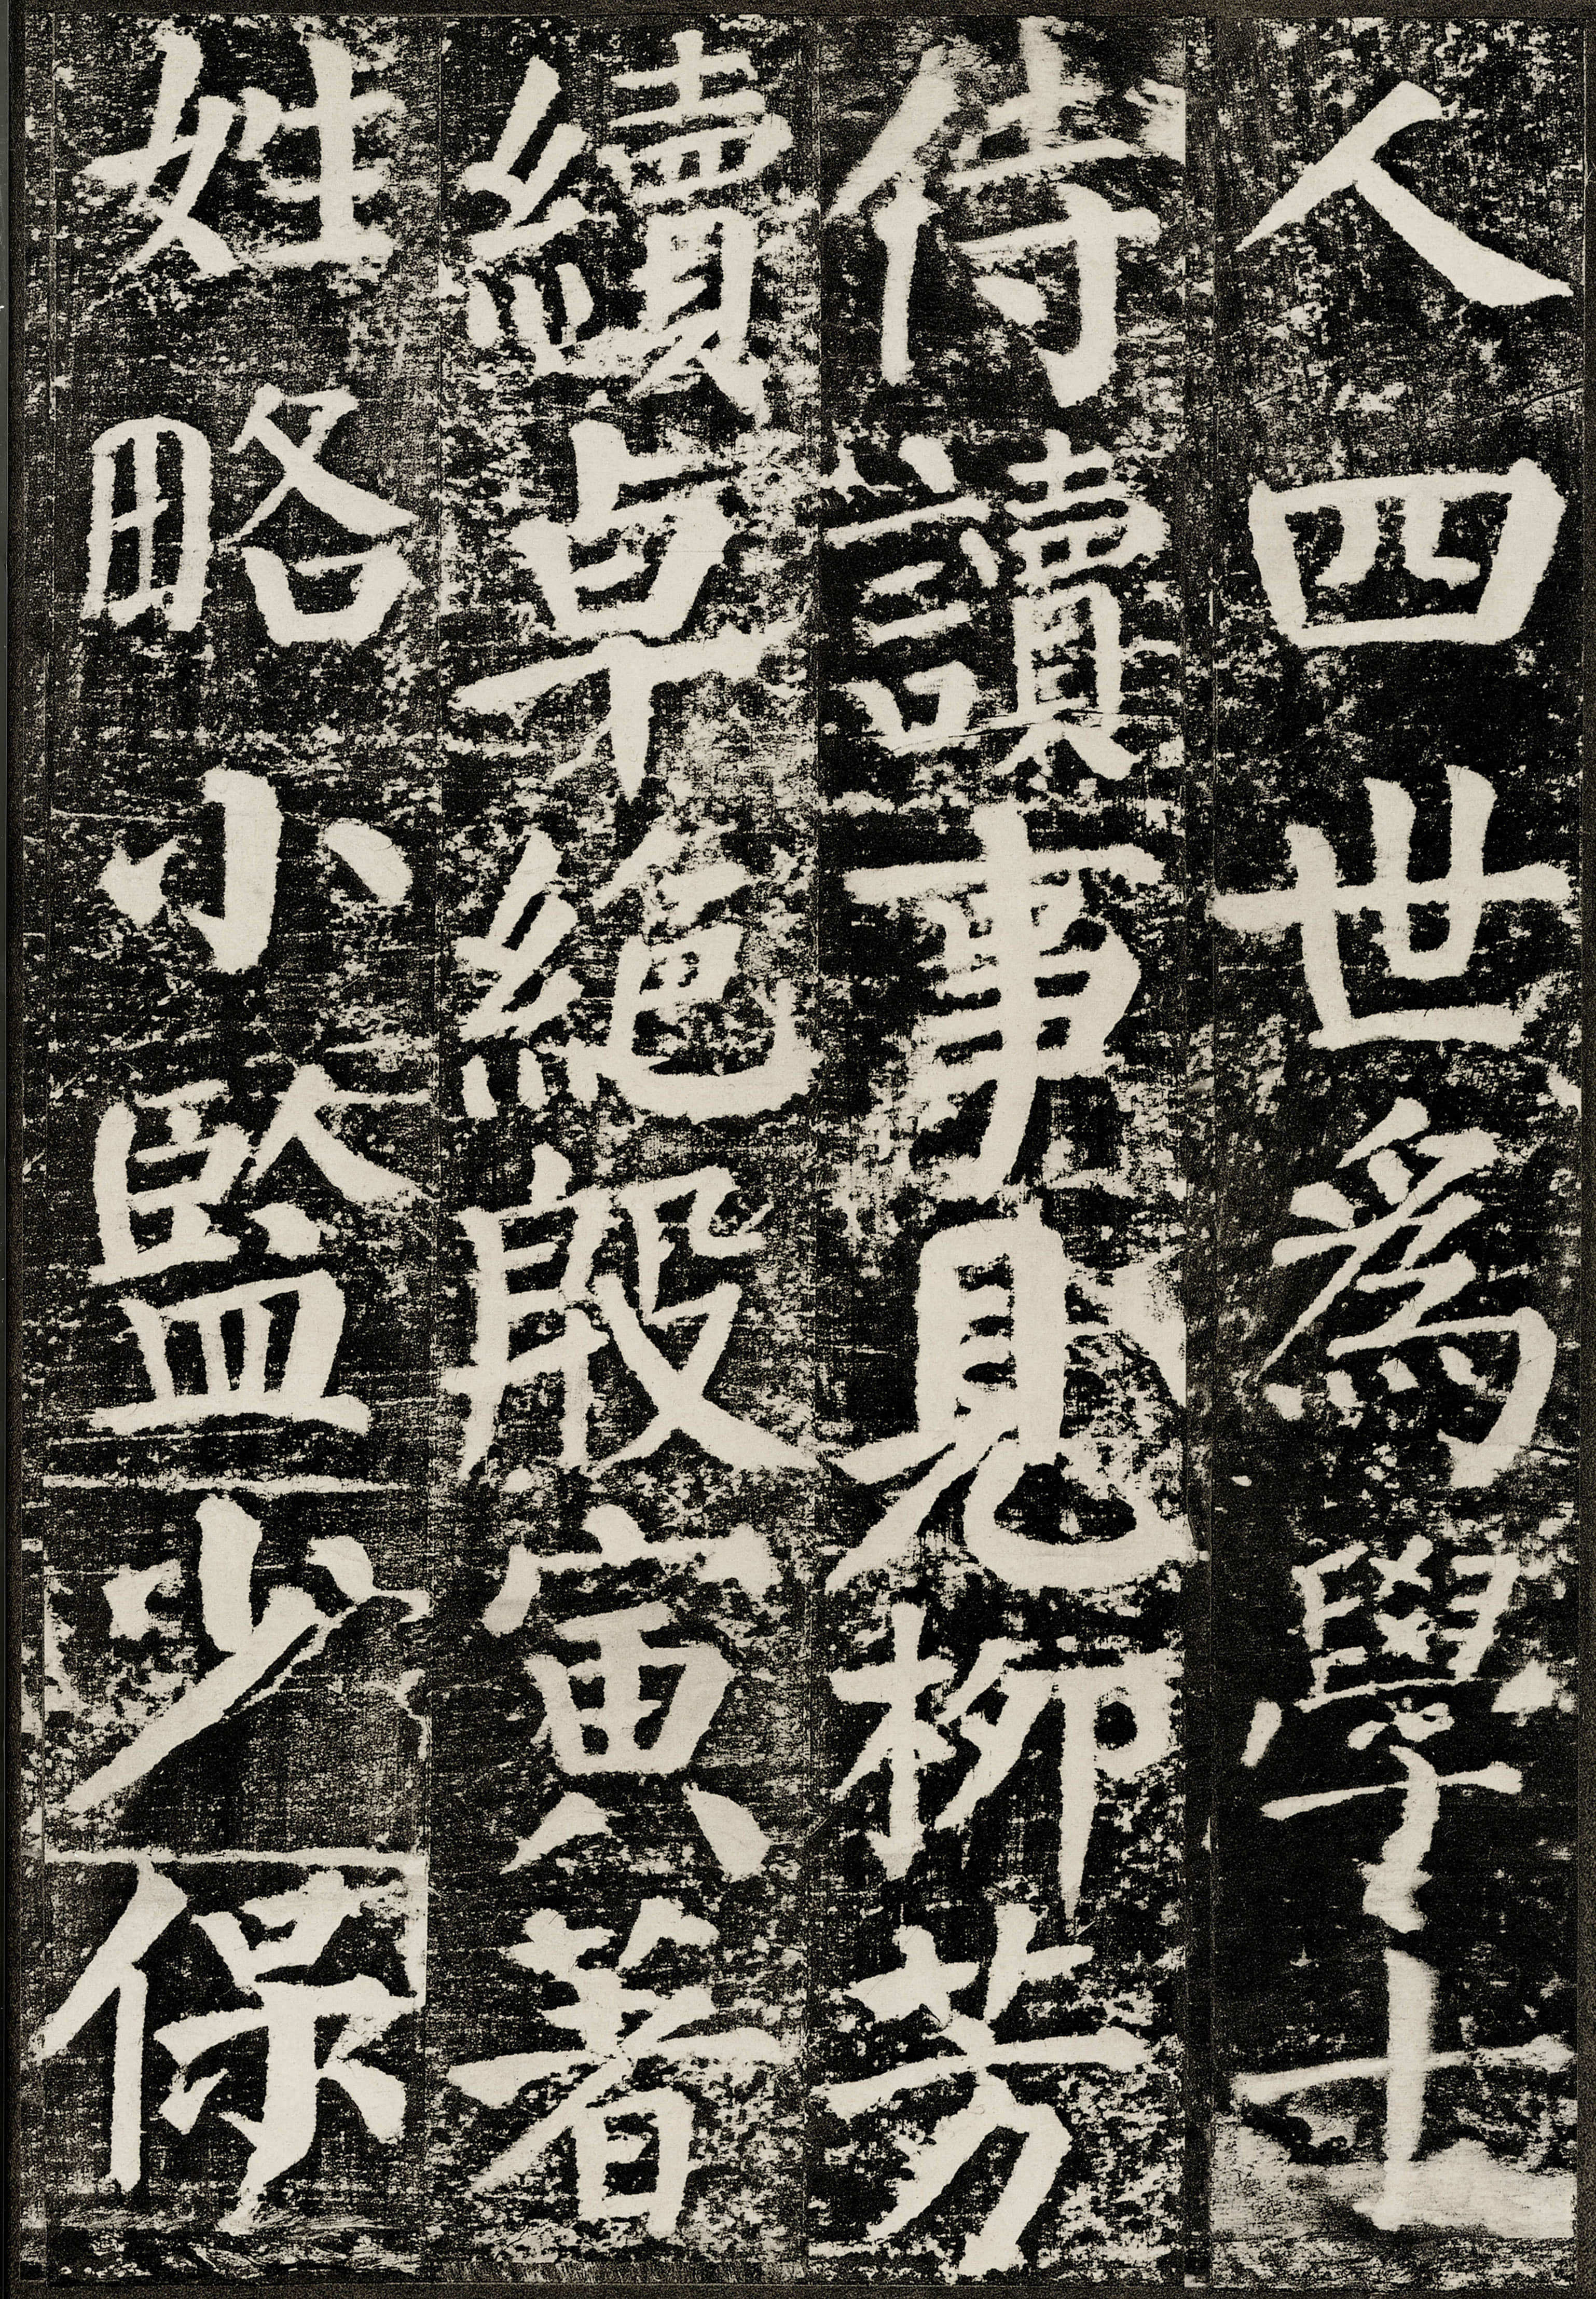 人四世爲學士
侍讀事見柳芳
續卓絕殷寅著
姓略小監少保